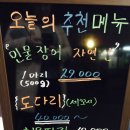 오늘의 추천메뉴
"민물 장어 자연산"
1마리 29,000
(500g)
{도다리}(세꼬시)
40,000~